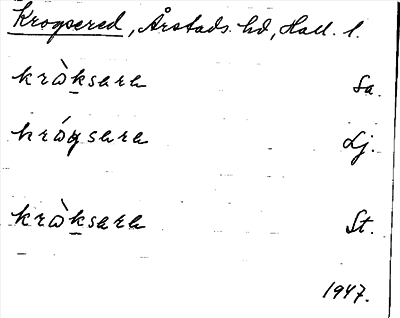 Krogsered, Årstads hd, Hall. l.
krὼksara Sa.
krώgsara Lj.
krὼksara St.
1947.